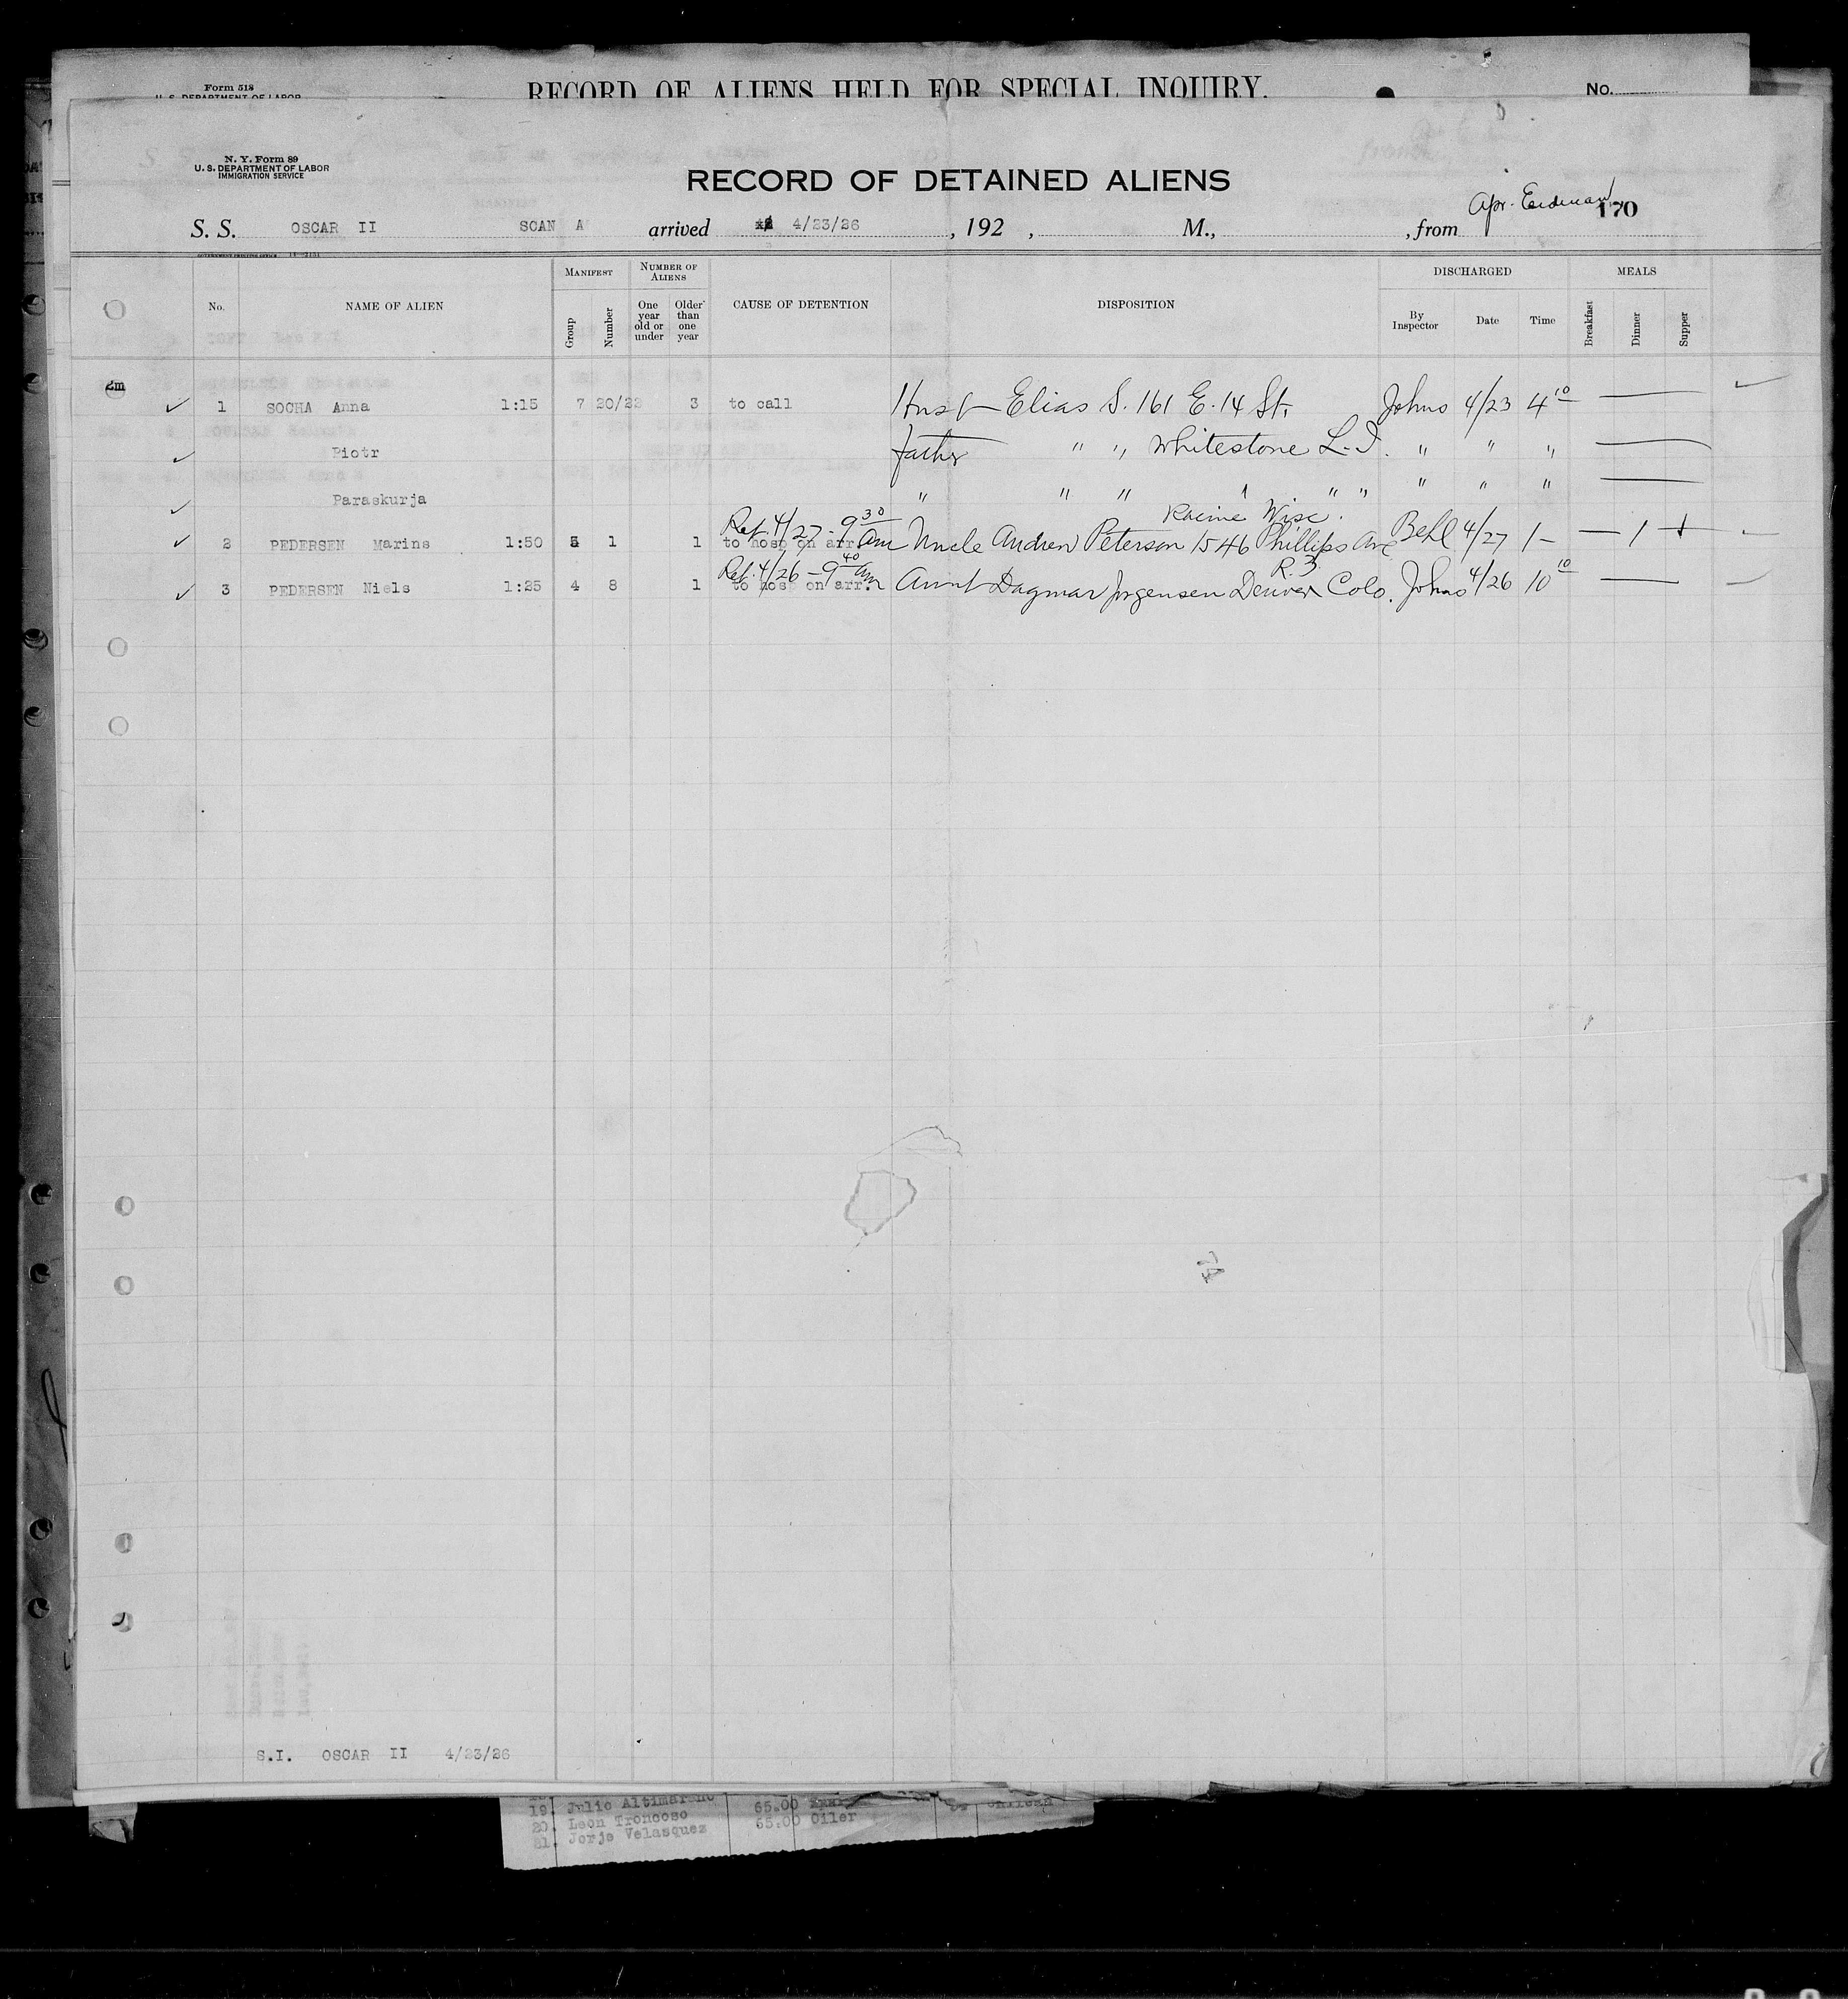 Form 518
U. S. DEPARTMENT OF LABOR
RECORD OF ALIENS HELD FOR SPECIAL INQUIRY.
No.
N. Y. Form 89
U. S. DEPARTMENT OF LABOR
IMMIGRATION SERVICE
RECORD OF DETAINED ALIENS
170
S. S. OSCAR II SCAN A arrived 4/23/26, 192 , M., , from
GOVERNMENT PRINTING OFFICE
MANIFEST NUMBER OF ALIENS DISCHARGED MEALS
No. NAME OF ALIEN Group Number One year old or under Older than one year CAUSE OF DETENTION DISPOSITION By Inspector Date Time Breakfast Dinner Supper
2m
1 SOCHA Anna 1:15 7 20/22 3 to call Husb Elias S. 161 E. 14 St. Johns 4/23 4 10
Piotr father " " Whitestone L. I. " " "
Paraskurja " " " " " " " "
Racine Wisc.
Ret. 4/27 - 9 30 Am
2 PEDERSEN Marins 1:50 5 1 1 to hosp on arr Uncle Andrew Peterson 1546 Phillips Ave Behl 4/27 1- — 1 +
Ret. 4/26 - 9 40 Am R. 3
3 PEDERSEN Niels 1:25 4 8 1 to hosp on arr. Aunt Dagmar Jorgensen Denver Colo. Johns 4/26 10 10
S.I. OSCAR II 4/23/26
19. Julio Altimarano 65.00
20. Leon Troncoso 65.00 Oiler
21. Jorje Velasquez